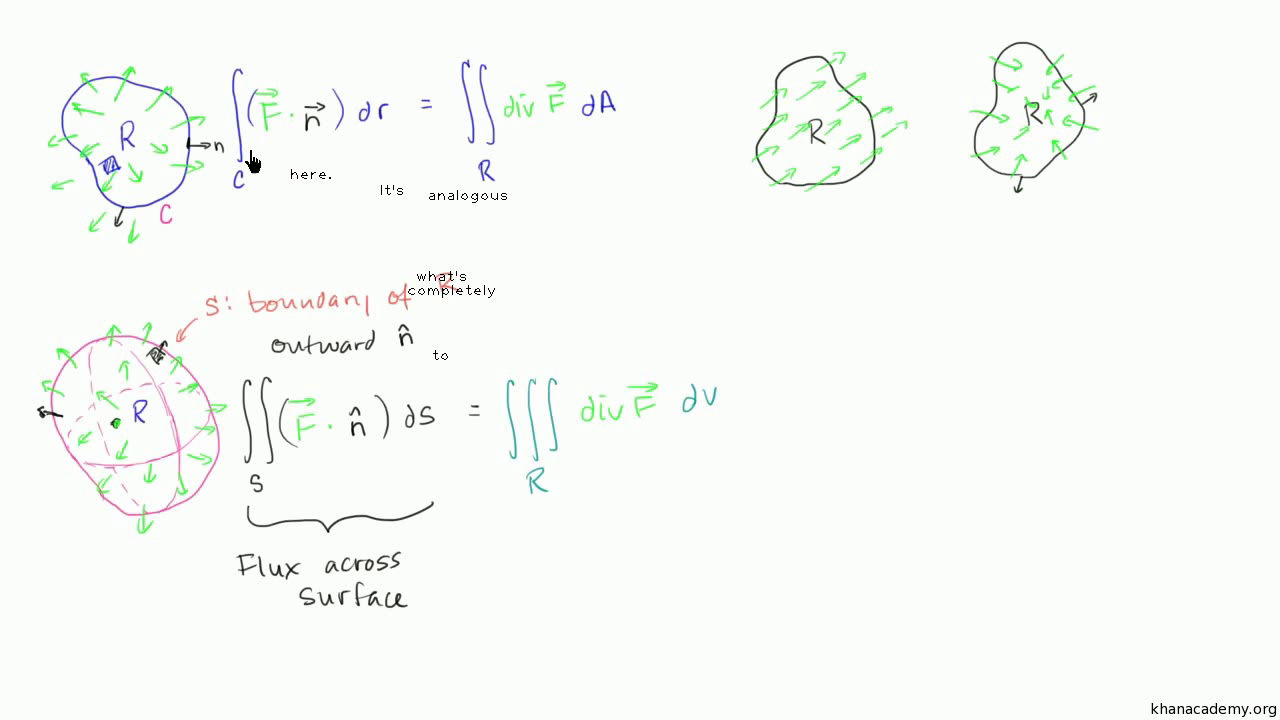 ∫_C (F⃗ · n⃗) dr = ∬_R div F⃗ dA
R
n
C
R
R
here. It's analogous
what's
completely
to
S: boundary of R
outward n̂
R
∬_S (F⃗ · n̂) dS = ∭_R div F⃗ dv
Flux across
surface
khanacademy.org